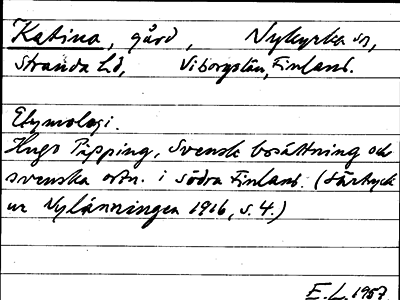 Katina, gård, Nykyrka sn,
Stranda hd, Viborgs län, Finland.
Etymologi.
Hugo Pipping, Svensk bosättning och
svenska ortn. i södra Finland. (Särtryck
ur Nylänningen 1916, s. 4.)
E.L. 1957.